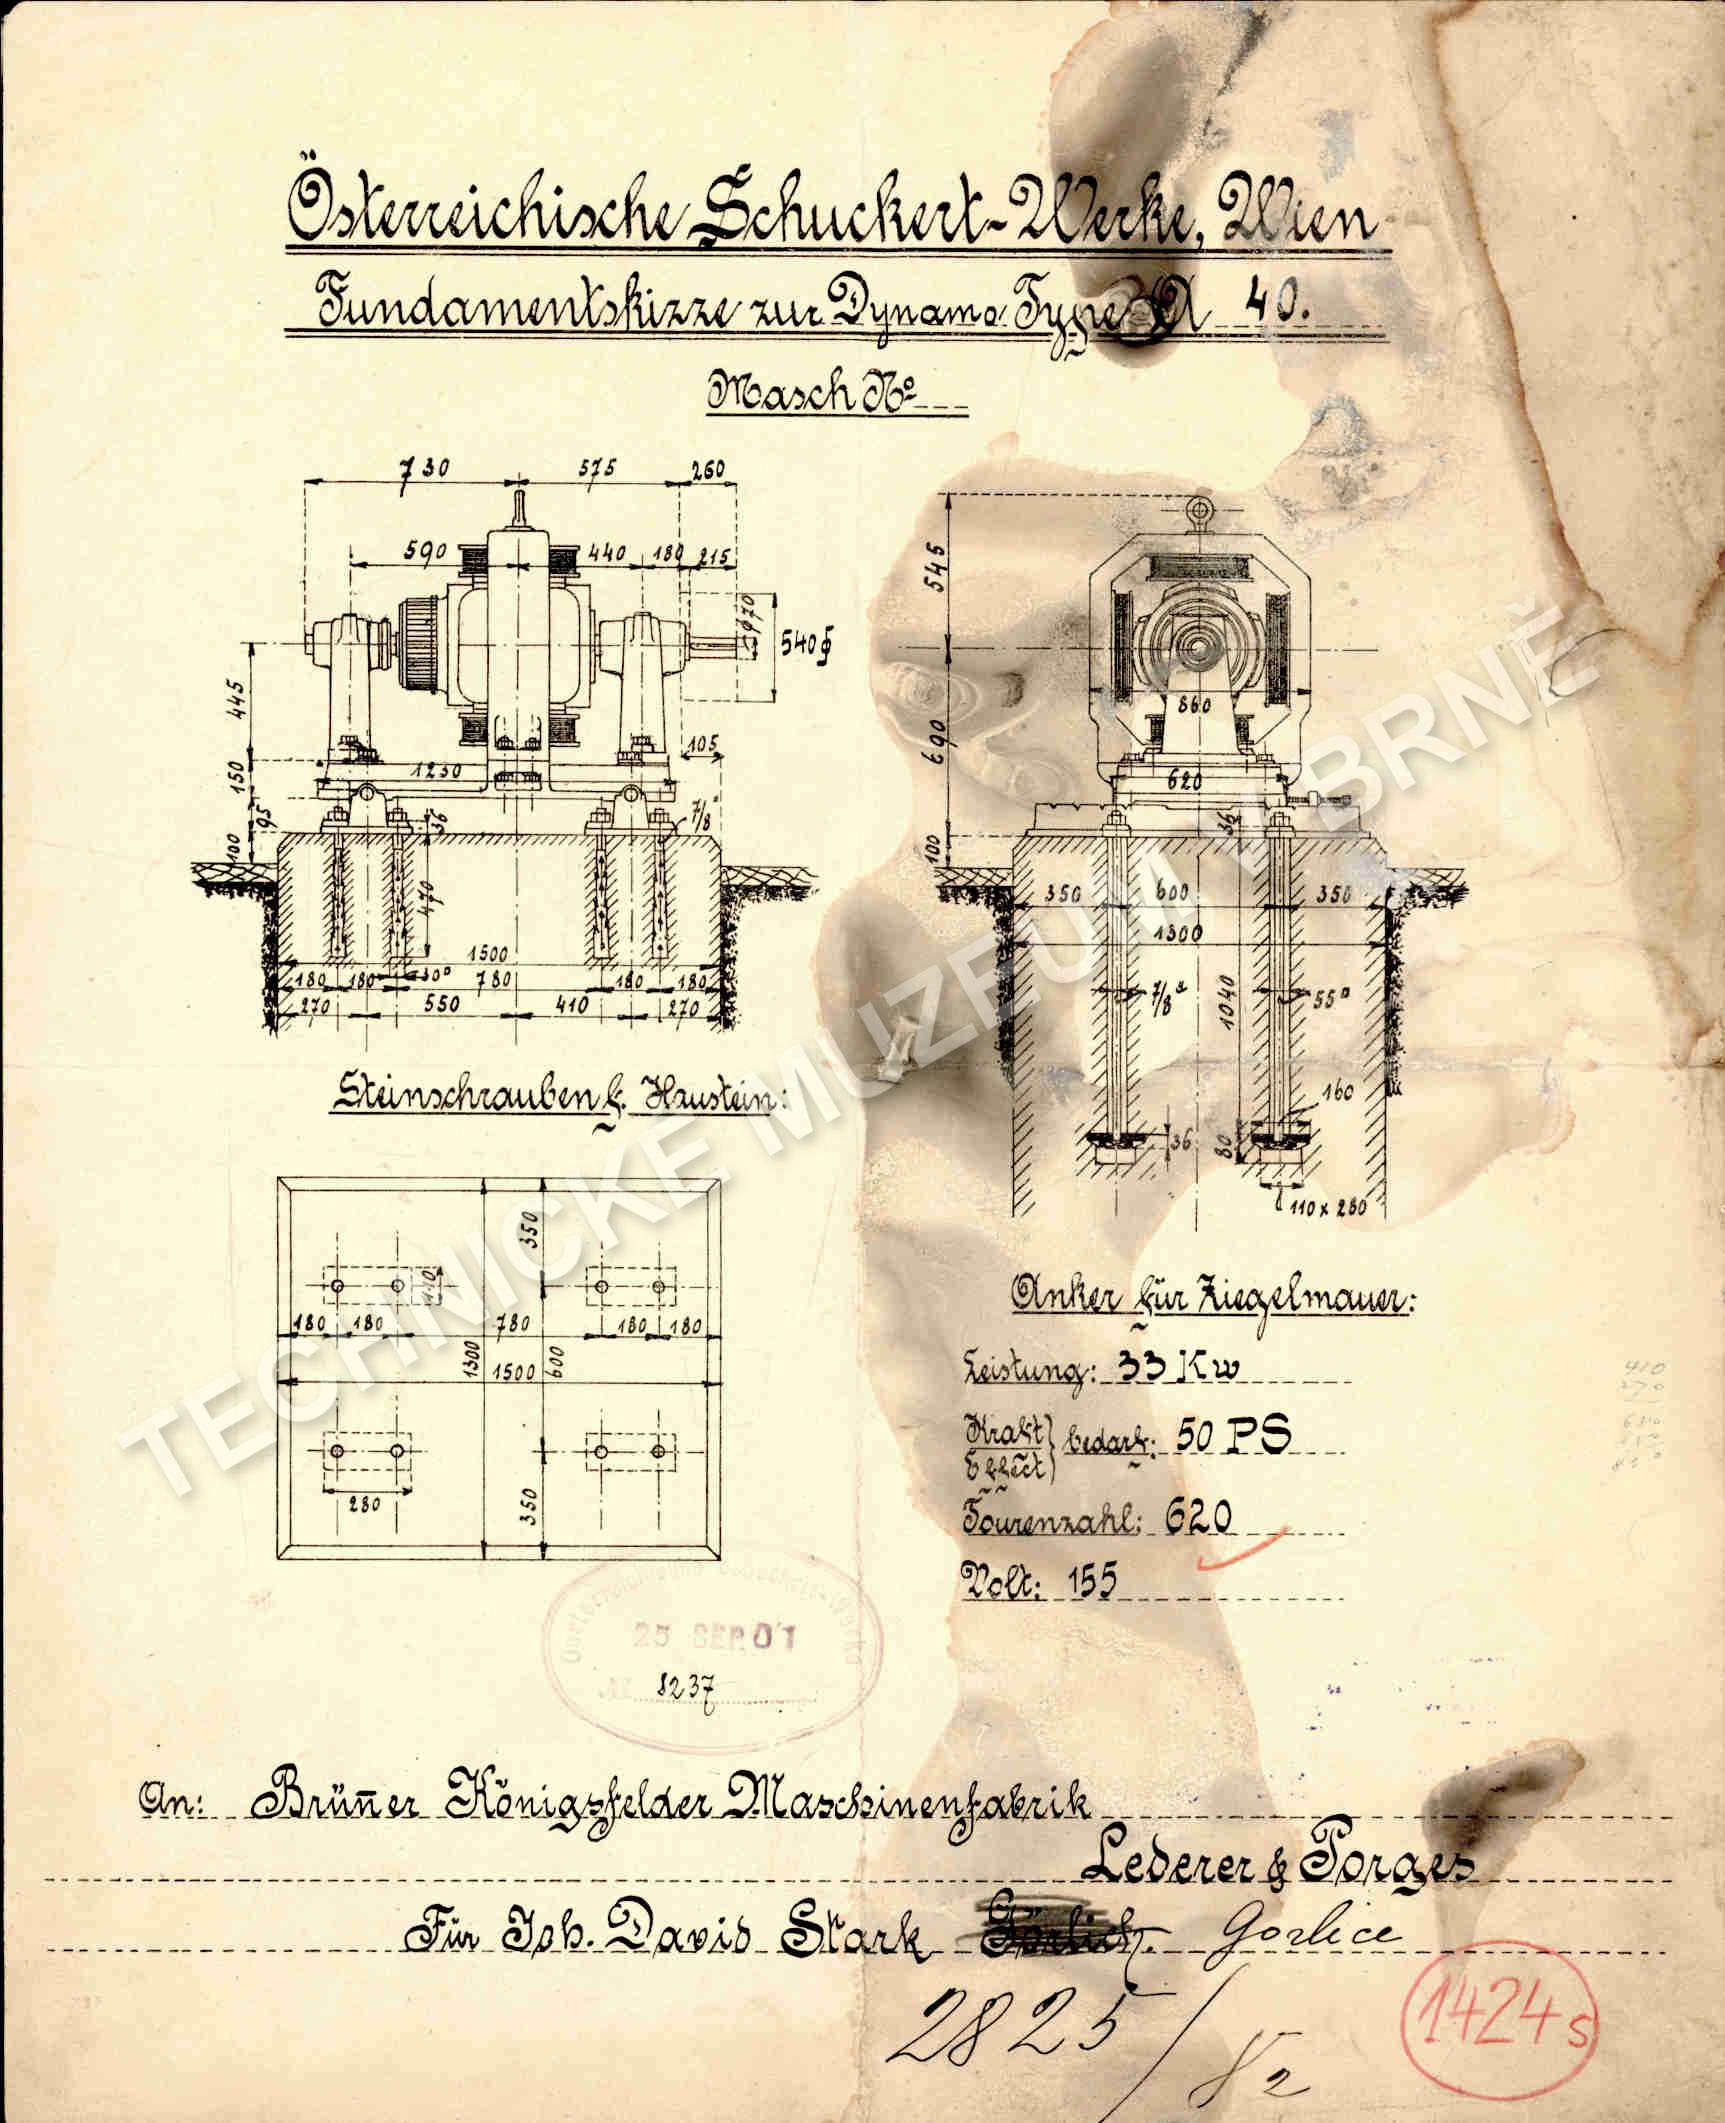 Österreichische Schuckert-Werke, Wien
Fundamentskizze zur Dynamo Type A 40.
Masch No
730 575 260
590 440 180 215
φ70
540
445
150
95
100
1250
105
36
7/8"
470
1500
180 180 30 780 180 180
270 550 410 270
Steinschrauben f. Haustein:
545
690
100
860
620
36
350 600 350
1300
7/8"
1040
55
160
36
80
110 x 280
Anker für Ziegelmauer:
350
110
180 180 780 180 180
1300
1500
600
280
350
Leistung: 33 Kw
Kraft
Effect
bedarf: 50 PS
Tourenzahl: 620
Volt: 155
Oesterreichische Schuckert-Werke
25 SEP. 01
№ 8237
An: Brün̄er Königsfelder Maschinenfabrik
Lederer & Porges
Für Joh. David Stark Görlich. Gorlice
2825/
1424 s
410
270
TECHNICKÉ MUZEUM V BRNĚ